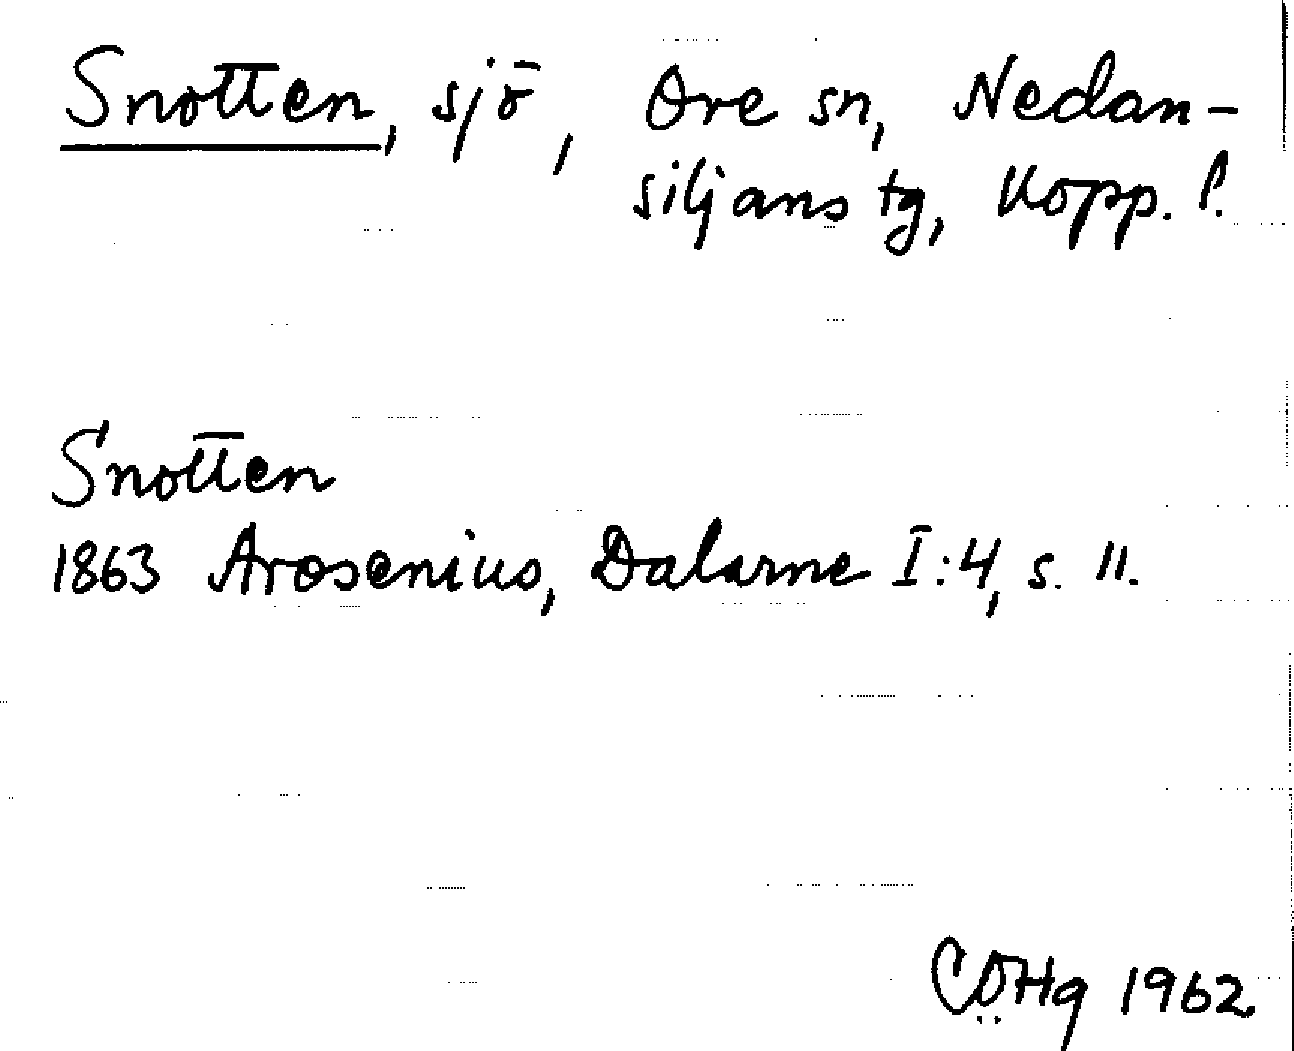 Snotten, sjö, Ore sn, Nedan-
siljans tg, Kopp. l.
Snotten
1863 Arosenius, Dalarne I:4, s. 11.
COHg 1962